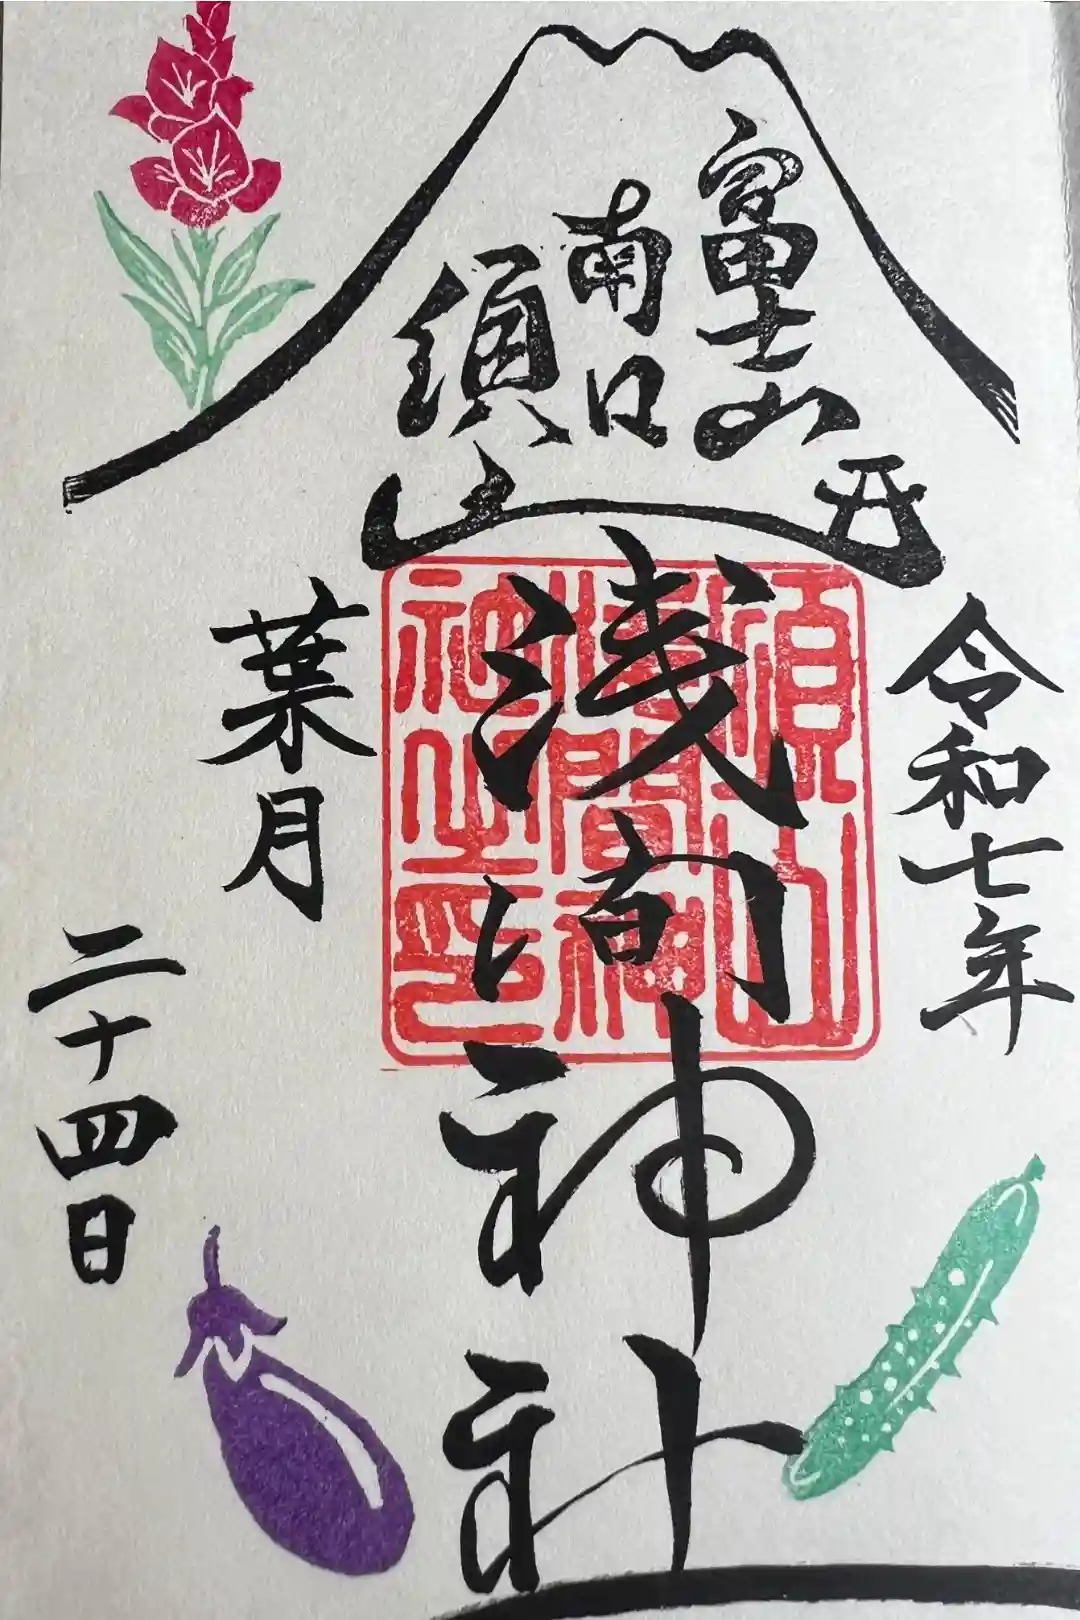 令和七年
富士山
南口
須山
浅間神社
葉月
二十四日
須山
浅間神
社之印